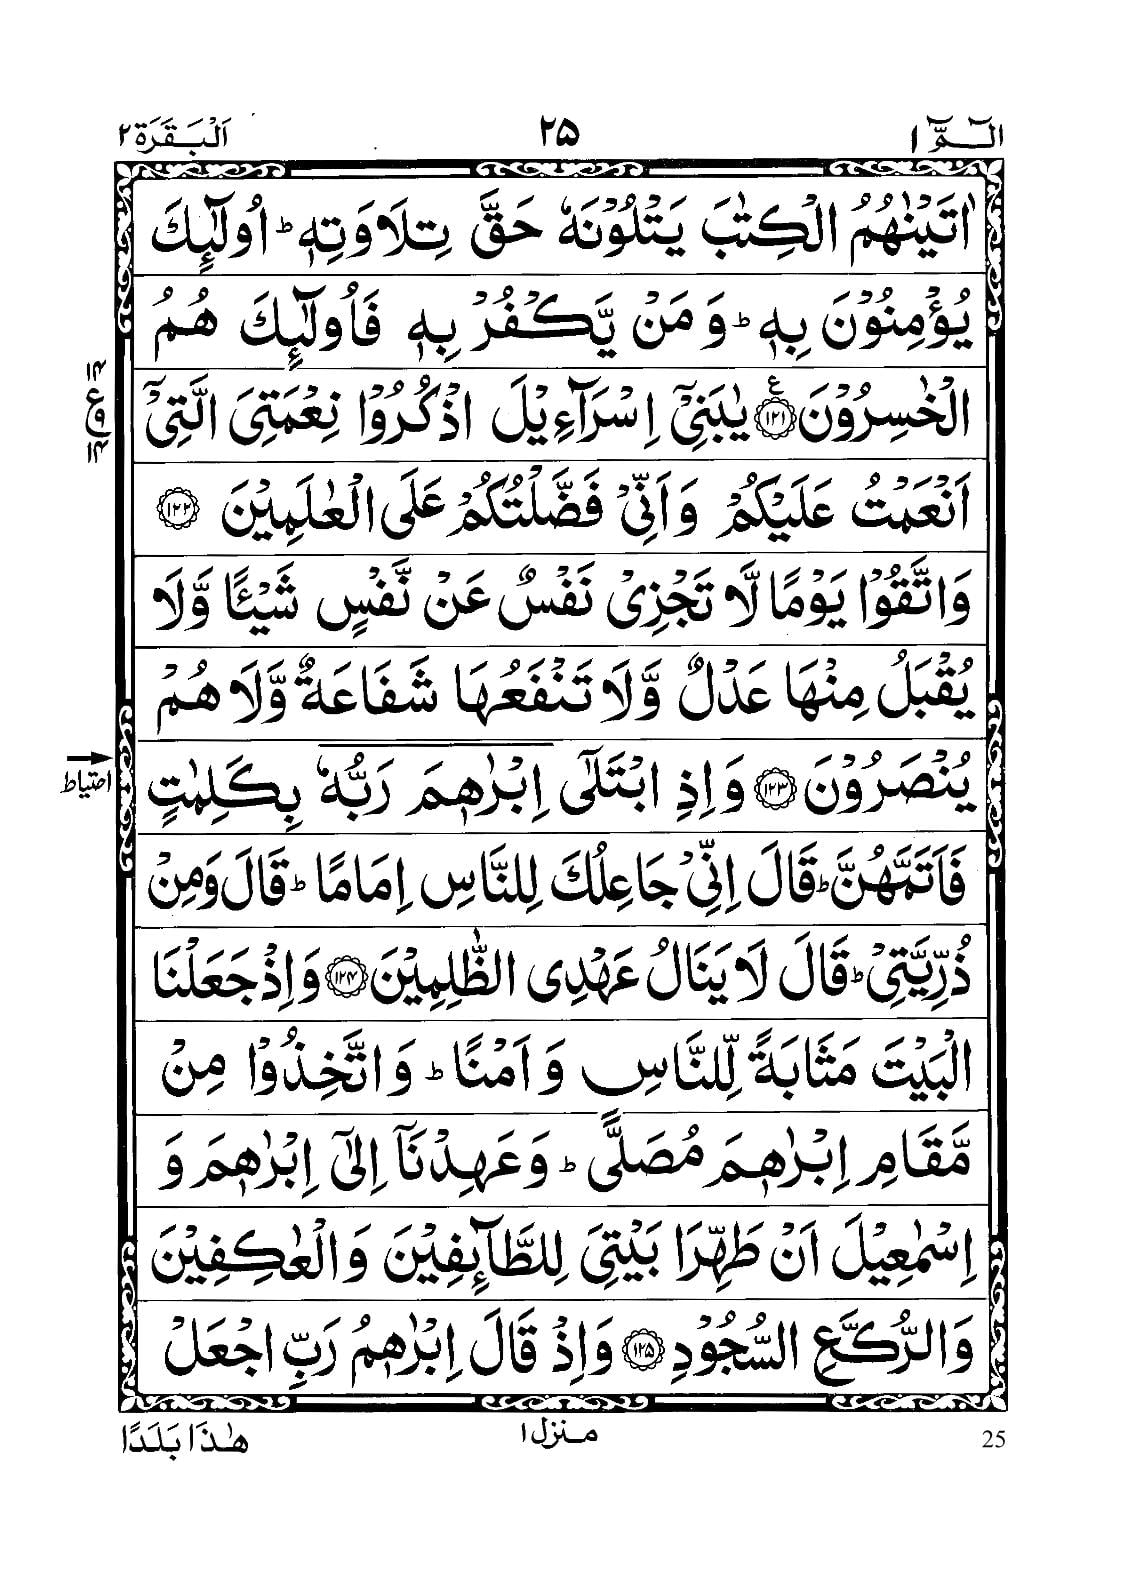 الٓمّٓ ۱
۲۵
اَلْبَقَرَة ۲
اٰتَيْنٰهُمُ الْكِتٰبَ يَتْلُوْنَهٗ حَقَّ تِلَاوَتِهٖ ؕ اُولٰٓئِكَ
يُؤْمِنُوْنَ بِهٖ ؕ وَ مَنْ يَّكْفُرْ بِهٖ فَاُولٰٓئِكَ هُمُ
الْخٰسِرُوْنَ ﴿۱۲۱﴾ ع يٰبَنِىْٓ اِسْرَآءِيْلَ اذْكُرُوْا نِعْمَتِىَ الَّتِىْٓ
۱۴
ع
۹
۱۴
اَنْعَمْتُ عَلَيْكُمْ وَ اَنِّىْ فَضَّلْتُكُمْ عَلَى الْعٰلَمِيْنَ ﴿۱۲۲﴾
وَاتَّقُوْا يَوْمًا لَّا تَجْزِىْ نَفْسٌ عَنْ نَّفْسٍ شَيْئًا وَّلَا
يُقْبَلُ مِنْهَا عَدْلٌ وَّلَا تَنْفَعُهَا شَفَاعَةٌ وَّلَا هُمْ
يُنْصَرُوْنَ ﴿۱۲۳﴾ وَاِذِ ابْتَلٰٓى اِبْرٰهٖمَ رَبُّهٗ بِكَلِمٰتٍ
احتیاط
فَاَتَمَّهُنَّ ؕ قَالَ اِنِّىْ جَاعِلُكَ لِلنَّاسِ اِمَامًا ؕ قَالَ وَمِنْ
ذُرِّيَّتِىْ ؕ قَالَ لَا يَنَالُ عَهْدِى الظّٰلِمِيْنَ ﴿۱۲۴﴾ وَاِذْ جَعَلْنَا
الْبَيْتَ مَثَابَةً لِّلنَّاسِ وَ اَمْنًا ؕ وَ اتَّخِذُوْا مِنْ
مَّقَامِ اِبْرٰهٖمَ مُصَلًّى ؕ وَ عَهِدْنَآ اِلٰٓى اِبْرٰهٖمَ وَ
اِسْمٰعِيْلَ اَنْ طَهِّرَا بَيْتِىَ لِلطَّآئِفِيْنَ وَ الْعٰكِفِيْنَ
وَالرُّكَّعِ السُّجُوْدِ ﴿۱۲۵﴾ وَاِذْ قَالَ اِبْرٰهٖمُ رَبِّ اجْعَلْ
هٰذَا بَلَدًا
منزل ۱
25